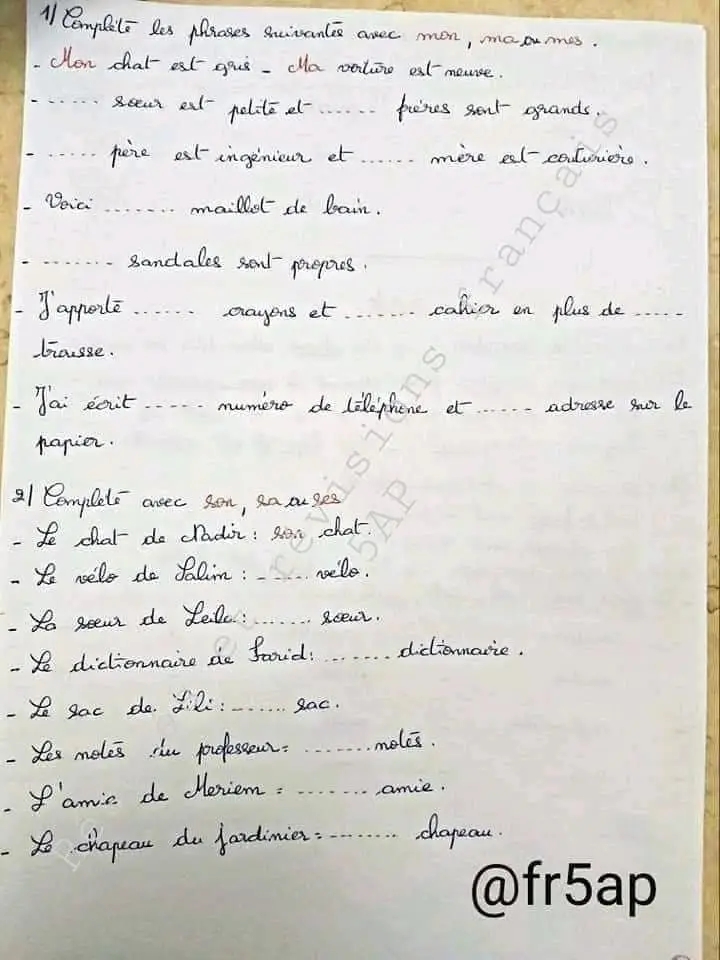 1/ Complète les phrases suivantes avec mon, ma ou mes.
- Mon chat est gris - Ma voiture est neuve.
- ..... sœur est petite et ...... frères sont grands.
- ..... père est ingénieur et ...... mère est couturière.
- Voici ....... maillot de bain.
- ....... sandales sont propres.
- J'apporte ...... crayons et ....... cahier en plus de .....
trousse.
- J'ai écrit ..... numéro de téléphone et ...... adresse sur le
papier.
2/ Complète avec son, sa ou ses
- Le chat de Nadir : son chat.
- Le vélo de Salim : ...... vélo.
- La sœur de Leila : ....... sœur.
- Le dictionnaire de Farid : ....... dictionnaire.
- Le sac de Lili : ....... sac.
- Les notes du professeur = ....... notes.
- L'amie de Meriem = ....... amie.
- Le chapeau du jardinier = ........ chapeau.
et revisions français
5AP
@fr5ap